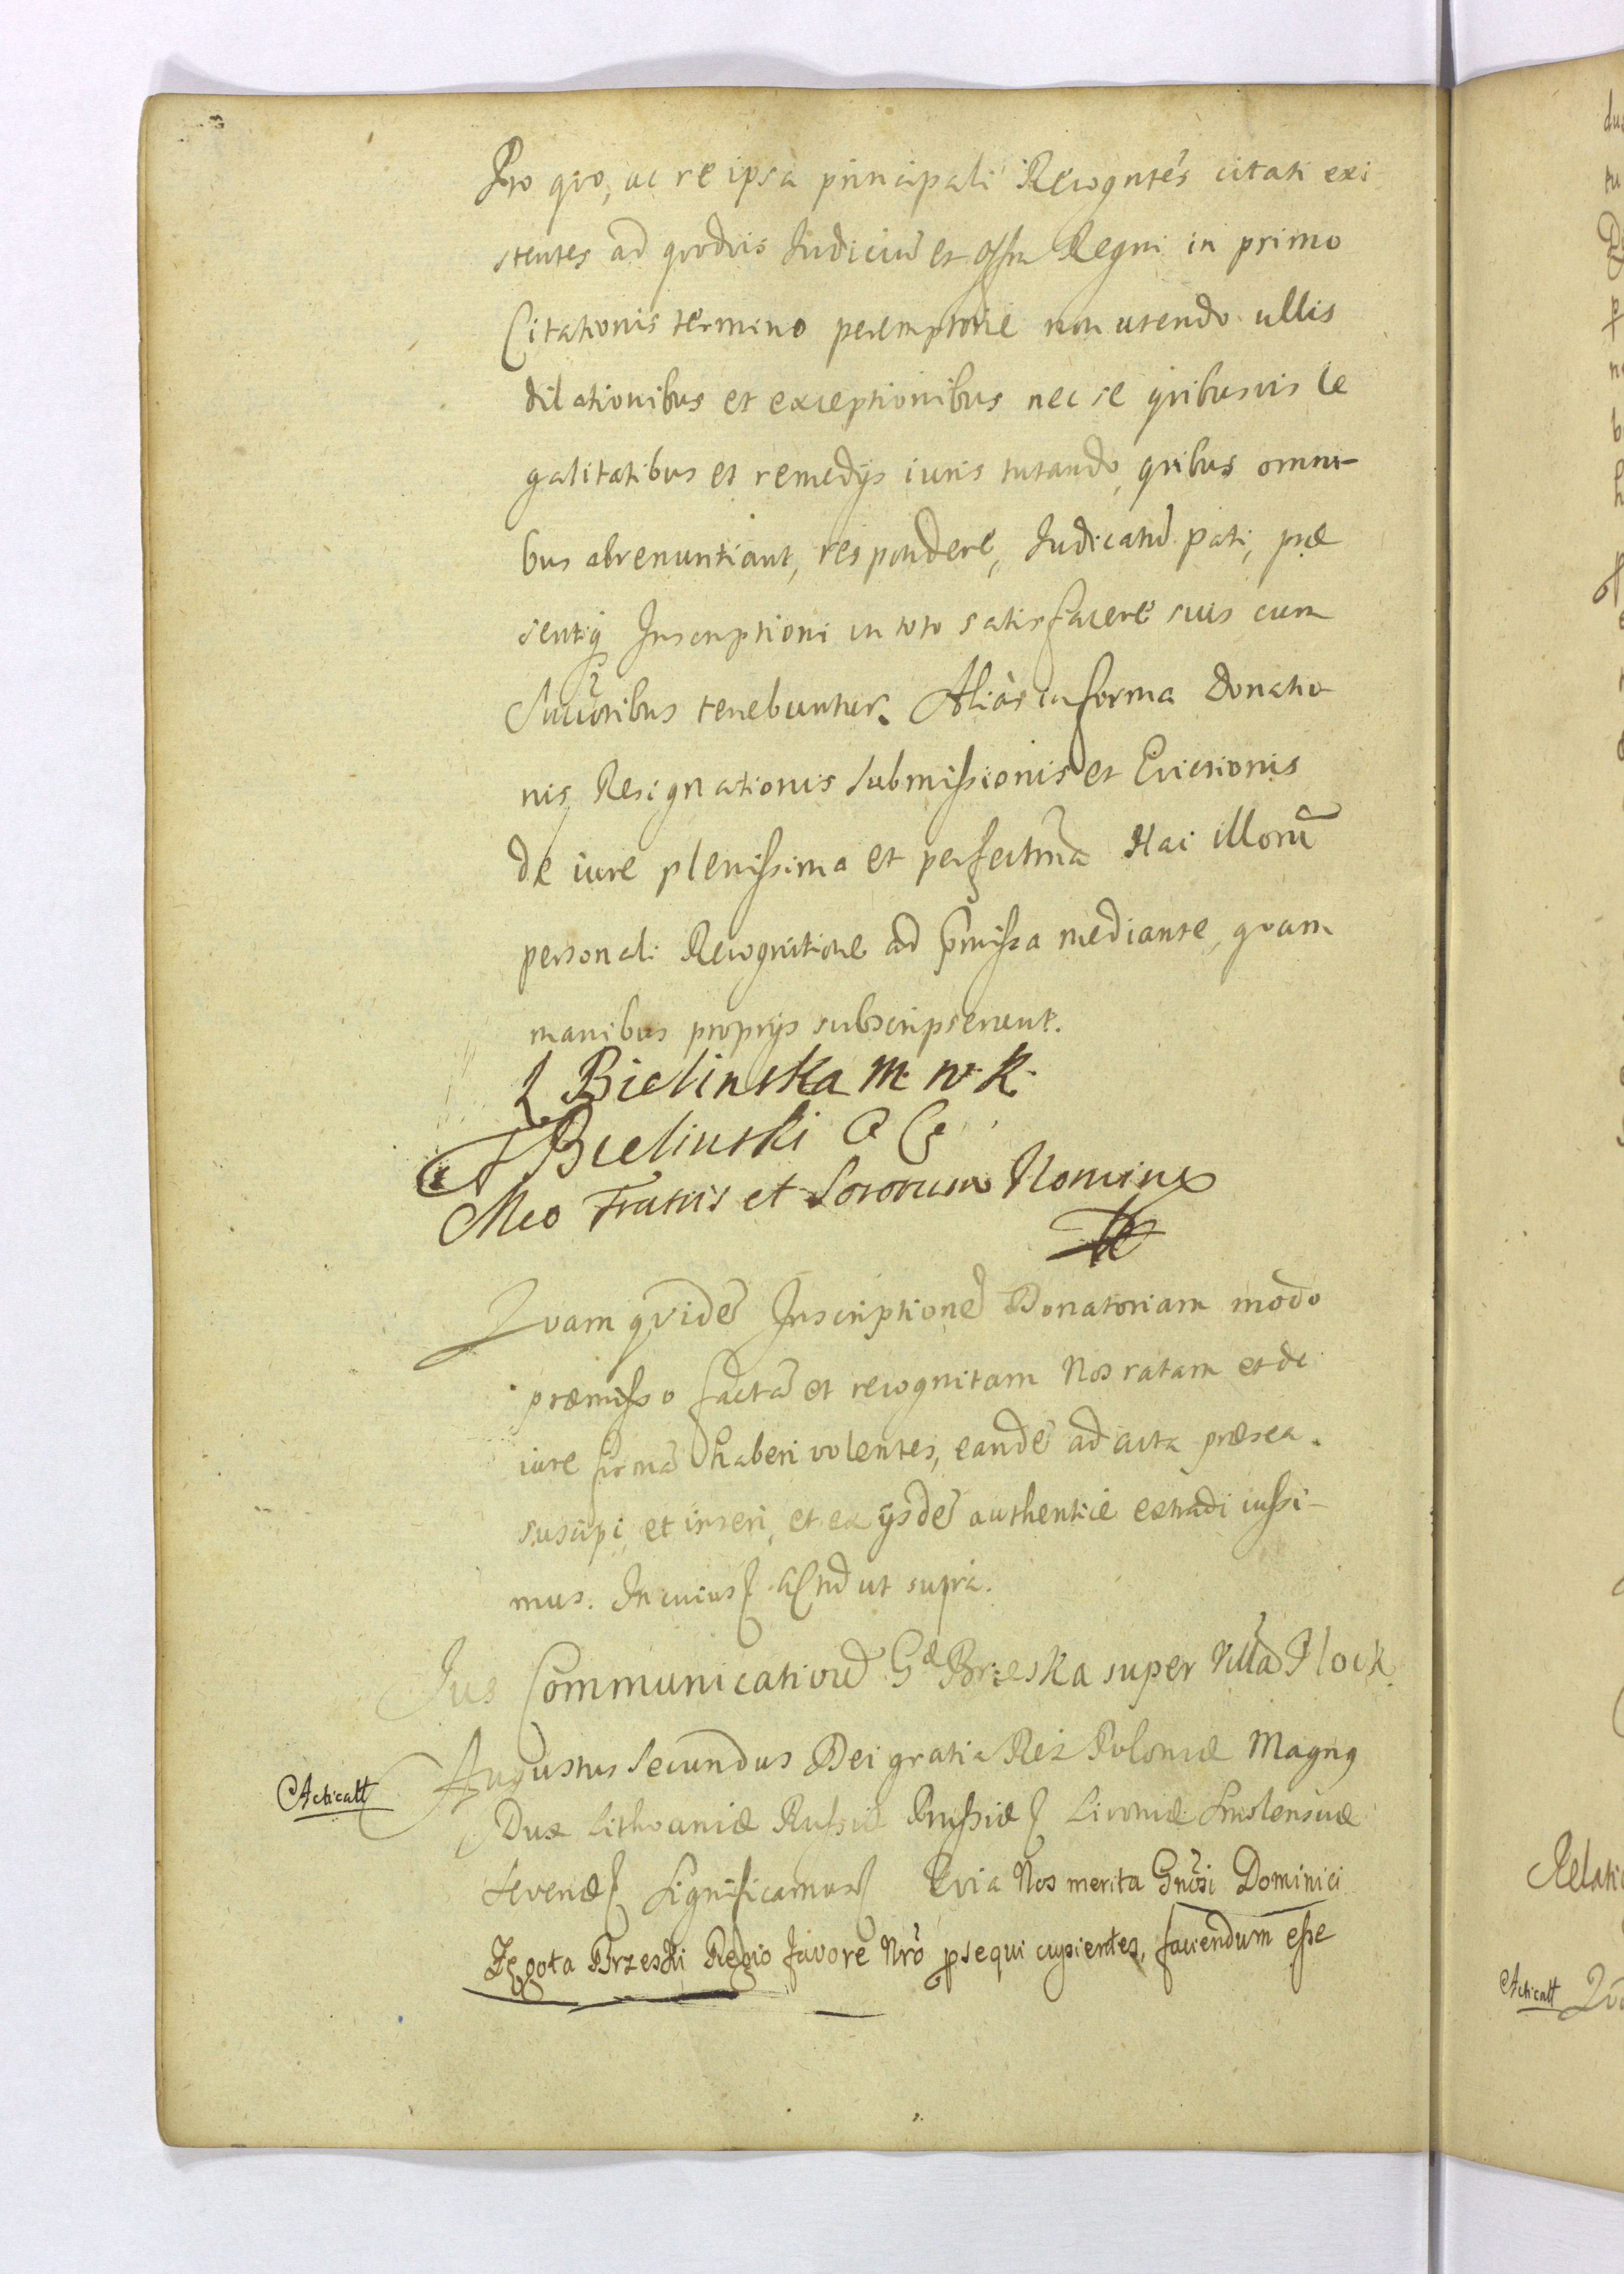 Pro quo, ac re ipsa principali Recogntes citati exi
stentes ad quodvis Judiciu et Offm Regni in primo
Citationis termino peremptorie non utendo ullis
dilationibus et exceptionibus nec se quibusvis le
galitatibus et remedijs iuris tutando, quibus omni-
bus abrenuntiant, respondere, Judicatu pati, præ
sentiq Inscriptioni in toto satisfacere suis cum
Succribus tenebuntur. Alias in forma Donatio
nis Resignationis Submissionis et Evictionis
de iure plenissima et perfectma Hac illoru
personali Recognitione ad pmissa mediante, quam
manibus proprijs subscripserunt.
L Bielinska M. W. K.
Bielinski
Meo Fratris et Sororum Nomine
Quam quide Inscriptione Donatoriam modo
præmisso facta et recognitam Nos ratam et de
iure firma haberi volentes, eande ad acta præsea.
suscipi et inseri, et ex ijsde authentice extradi iussi-
mus. In cuius Actu ut supra.
Jus Communicativu Gd Brzeska super Villa Plock.
Acticatt
Augustus Secundus Dei gratia Rex Poloniæ Magng
Dux Lithvaniæ Russiæ Prussiæ Livoniæ Smolensciæ
Severiæ Significamus Qvia Nos merita Gnosi Dominici
Zegota Brzeski Regio favore Nro psequi cupientes, faciendum esse
Relatio
Acticatt